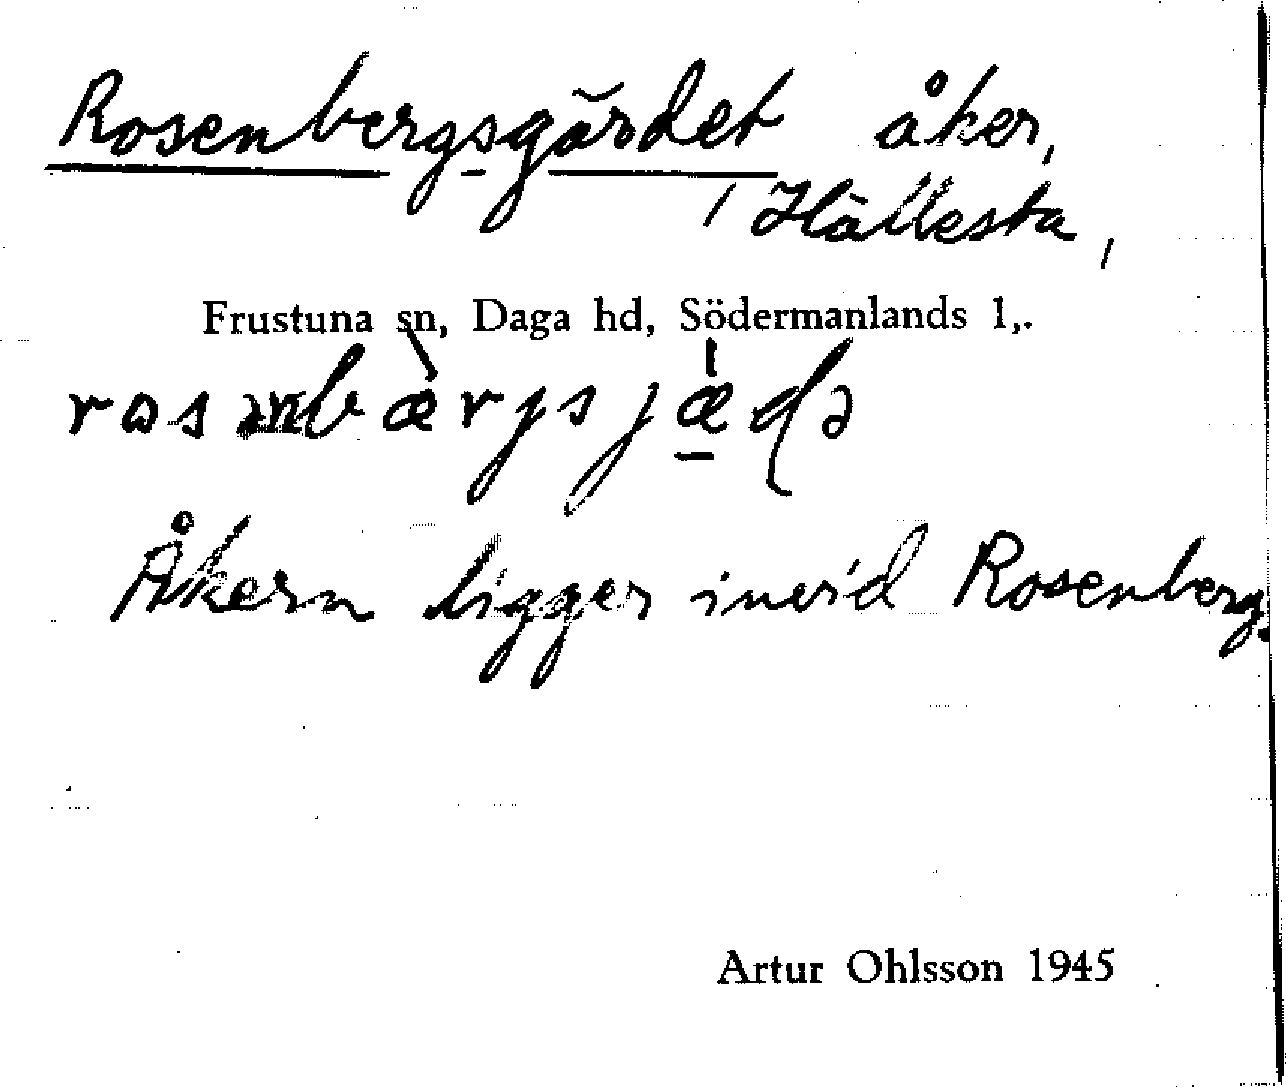 Rosenbergsgärdet åker,
Hällesta,
Frustuna sn, Daga hd, Södermanlands l,.
Åkern ligger invid Rosenberg.
Artur Ohlsson 1945